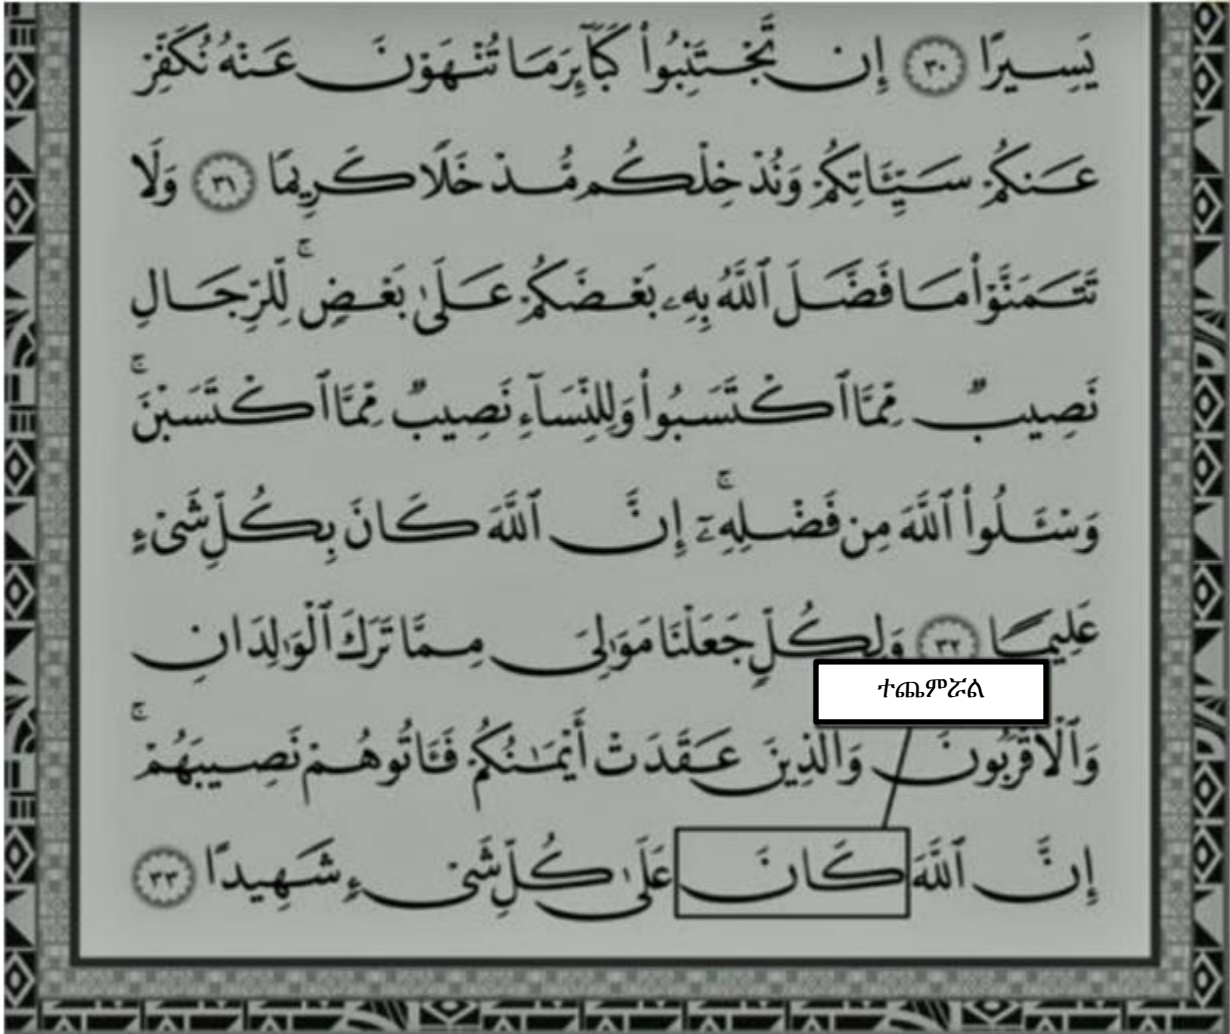 يَسِيرًا ٣٠ إِن تَجْتَنِبُوا۟ كَبَآئِرَ مَا تُنْهَوْنَ عَنْهُ نُكَفِّرْ
عَنكُمْ سَيِّـَٔاتِكُمْ وَنُدْخِلْكُم مُّدْخَلًا كَرِيمًا ٣١ وَلَا
تَتَمَنَّوْا۟ مَا فَضَّلَ ٱللَّهُ بِهِۦ بَعْضَكُمْ عَلَىٰ بَعْضٍ ۚ لِّلرِّجَالِ
نَصِيبٌ مِّمَّا ٱكْتَسَبُوا۟ وَلِلنِّسَآءِ نَصِيبٌ مِّمَّا ٱكْتَسَبْنَ ۚ
وَسْـَٔلُوا۟ ٱللَّهَ مِن فَضْلِهِۦٓ ۗ إِنَّ ٱللَّهَ كَانَ بِكُلِّ شَىْءٍ
عَلِيمًا ٣٢ وَلِكُلٍّ جَعَلْنَا مَوَٰلِىَ مِمَّا تَرَكَ ٱلْوَٰلِدَانِ
ተጨምሯል
وَٱلْأَقْرَبُونَ ۚ وَٱلَّذِينَ عَقَدَتْ أَيْمَـٰنُكُمْ فَـَٔاتُوهُمْ نَصِيبَهُمْ ۚ
إِنَّ ٱللَّهَ كَانَ عَلَىٰ كُلِّ شَىْءٍ شَهِيدًا ٣٣